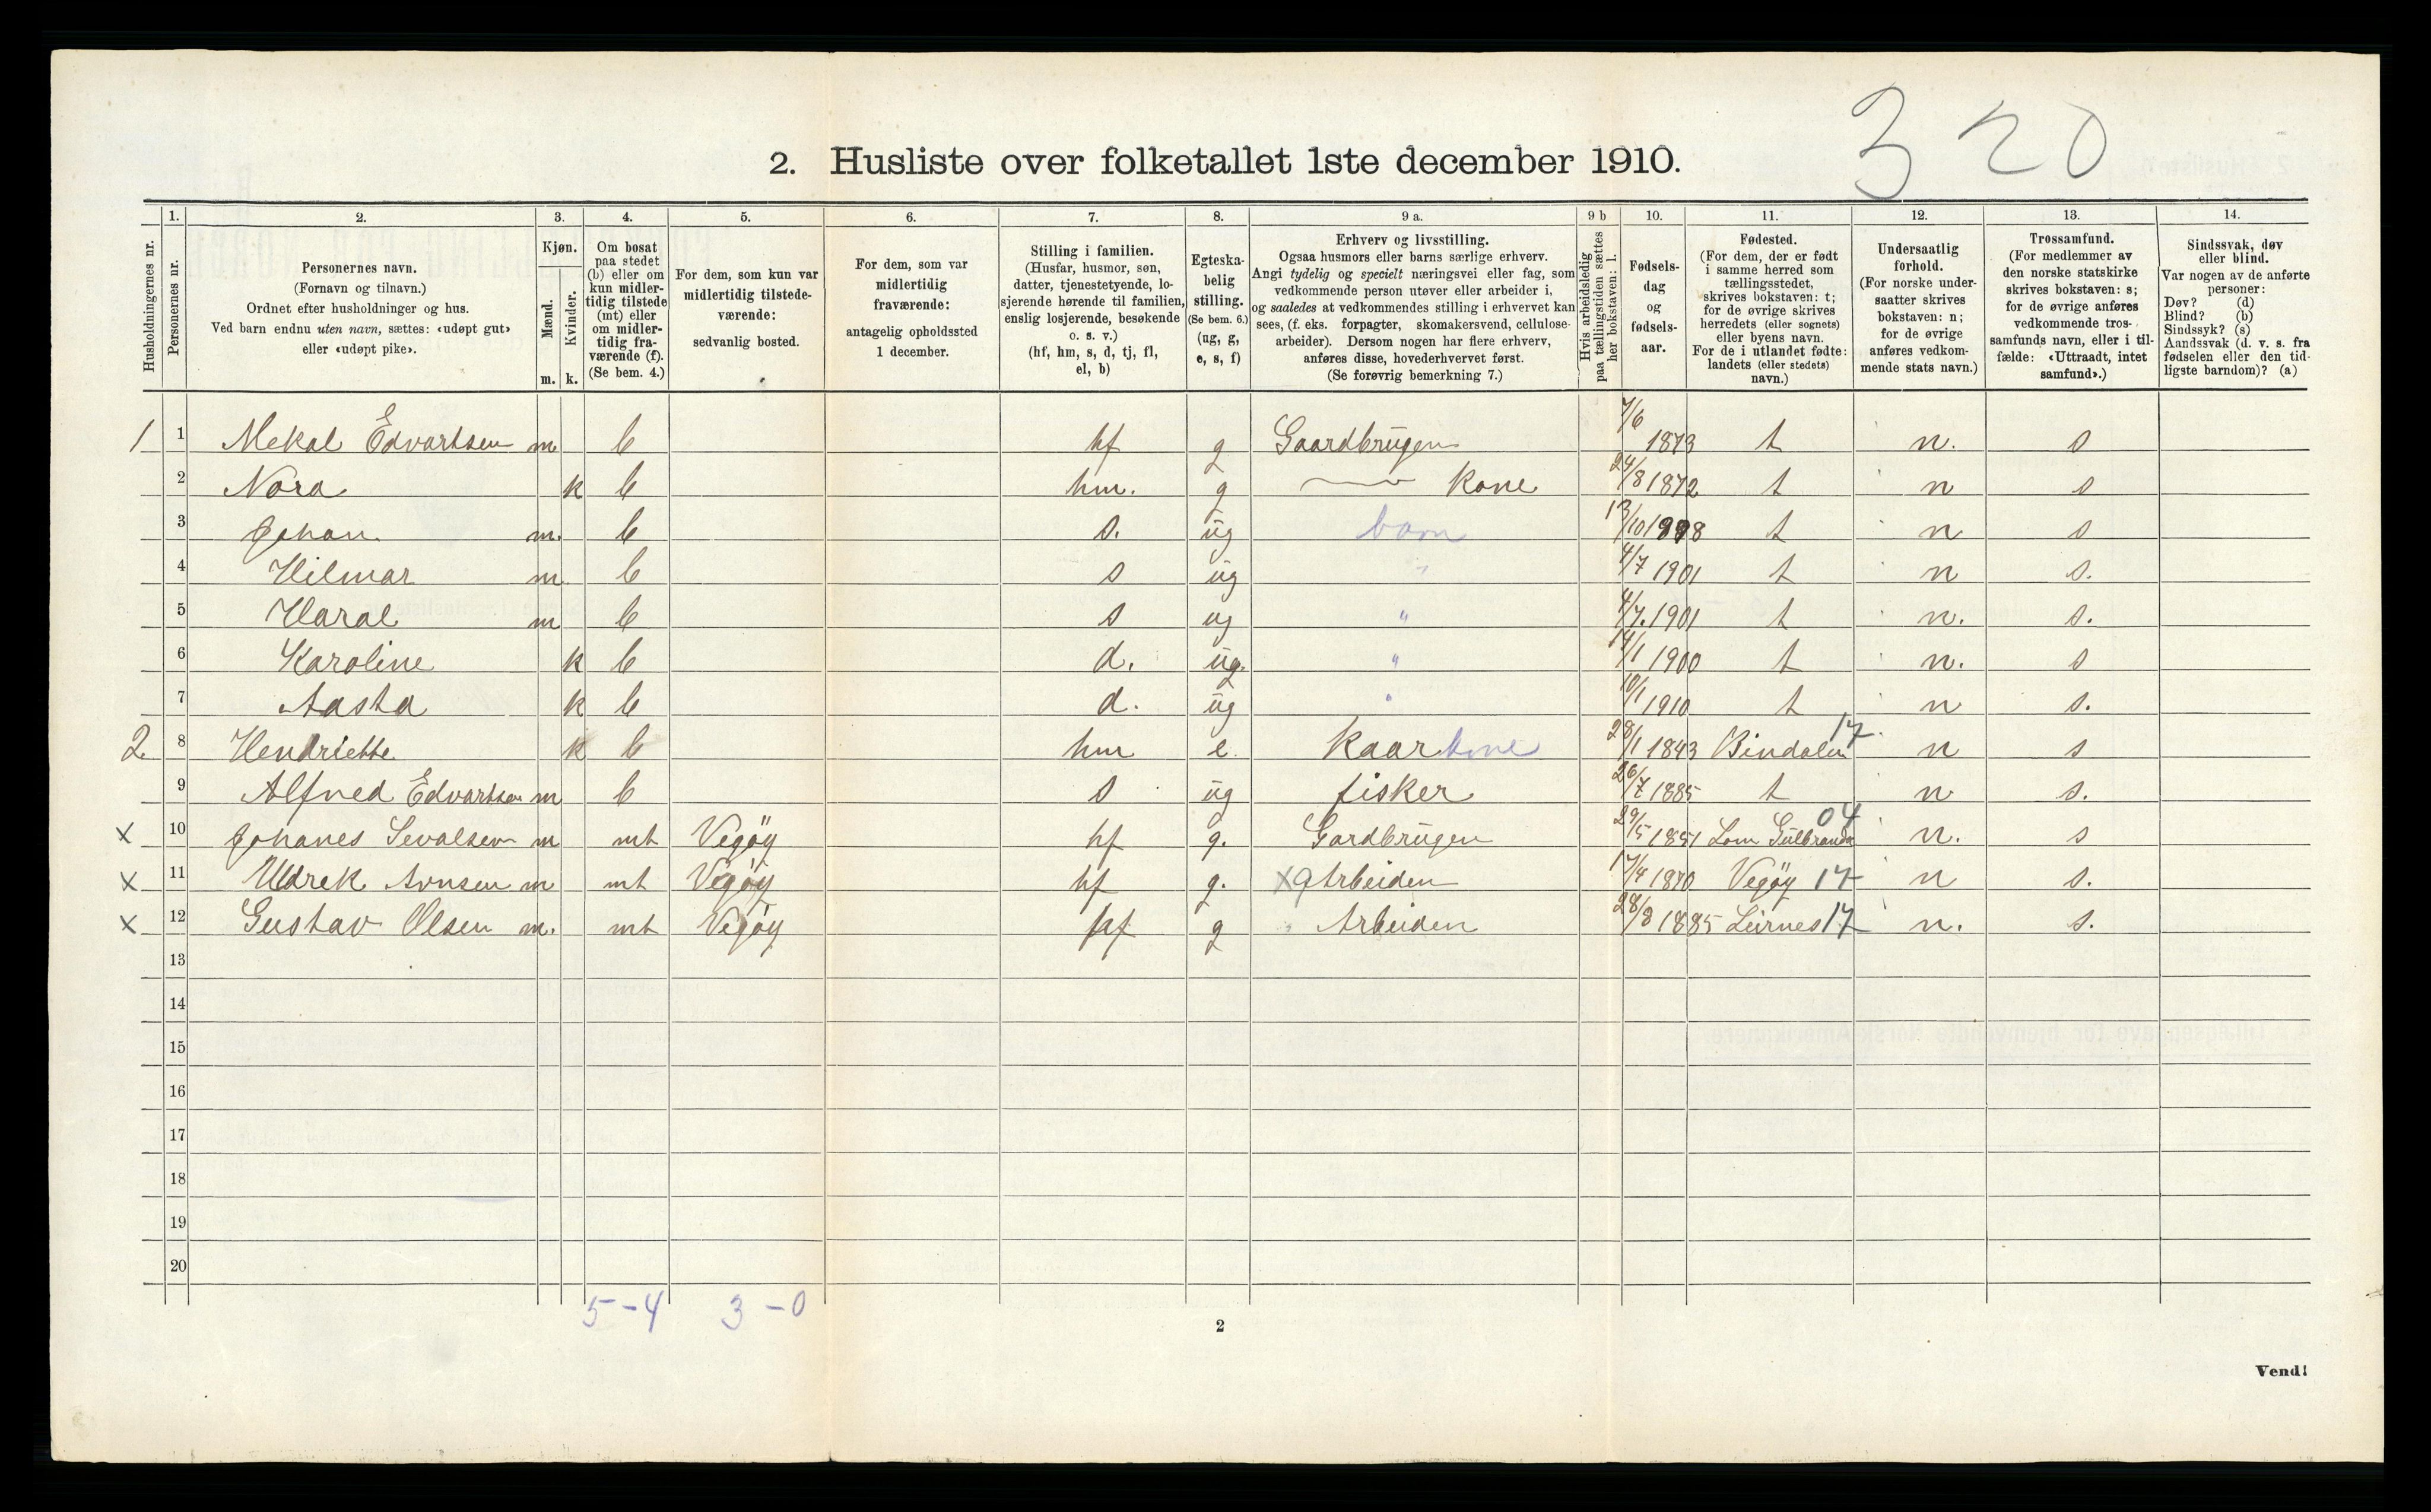 320
2. Husliste over folketallet 1ste december 1910.
Husholdningernes nr.
1.
Personernes nr.
2.
Personernes navn.
(Fornavn og tilnavn.)
Ordnet efter husholdninger og hus.
Ved barn endnu uten navn, sættes: «udøpt gut»
eller «udøpt pike».
3.
Kjøn.
Mænd.
Kvinder.
m. k.
4.
Om bosat
paa stedet
(b) eller om
kun midler-
tidig tilstede
(mt) eller
om midler-
tidig fra-
værende (f).
(Se bem. 4.)
5.
For dem, som kun var
midlertidig tilstede-
værende:
sedvanlig bosted.
6.
For dem, som var
midlertidig
fraværende:
antagelig opholdssted
1 december.
7.
Stilling i familien.
(Husfar, husmor, søn,
datter, tjenestetyende, lo-
sjerende hørende til familien,
enslig losjerende, besøkende
o. s. v.)
(hf, hm, s, d, tj, fl,
el, b)
8.
Egteska-
belig
stilling.
(Se bem. 6.)
(ug, g,
e, s, f)
9 a.
Erhverv og livsstilling.
Ogsaa husmors eller barns særlige erhverv.
Angi tydelig og specielt næringsvei eller fag, som
vedkommende person utøver eller arbeider i,
og saaledes at vedkommendes stilling i erhvervet kan
sees, (f. eks. forpagter, skomakersvend, cellulose-
arbeider). Dersom nogen har flere erhverv,
anføres disse, hovederhvervet først.
(Se forøvrig bemerkning 7.)
9 b
Hvis arbeidsledig
paa tællingstiden sættes
her bokstaven: l.
10.
Fødsels-
dag
og
fødsels-
aar.
11.
Fødested.
(For dem, der er født
i samme herred som
tællingsstedet,
skrives bokstaven: t;
for de øvrige skrives
herredets (eller sognets)
eller byens navn.
For de i utlandet fødte:
landets (eller stedets)
navn.)
12.
Undersaatlig
forhold.
(For norske under-
saatter skrives
bokstaven: n;
for de øvrige
anføres vedkom-
mende stats navn.)
13.
Trossamfund.
(For medlemmer av
den norske statskirke
skrives bokstaven: s;
for de øvrige anføres
vedkommende tros-
samfunds navn, eller i til-
fælde: «Uttraadt, intet
samfund».)
14.
Sindssvak, døv
eller blind.
Var nogen av de anførte
personer:
Døv? (d)
Blind? (b)
Sindssyk? (s)
Aandssvak (d. v. s. fra
fødselen eller den tid-
ligste barndom)? (a)
1 1 Mekal Edvartsen m b hf g Gaardbrugen 7/6 1873 t n. s
2 Nora k b hm. g Kone 24/8 1872 t n s
3 Johan m. b s. ug barn 13/10 t n s
4 Hilmar m b s ug " 4/7 1901 t n s.
5 Haral m b s ug " 4/7. 1901 t n. s.
6 Karoline k b d. ug. " 14/1 1900 t n. s
7 Aasta k b d. ug " 10/1 1910 t n s.
2 8 Hendriette k b hm e. Kaarkone 28/1 1843 Bindalen 17. n s
9 Alfred Edvartsen m b s ug fisker 26/7 1885 t n s.
x 10 Johanes Sevalsen m mt Vegöy hf g. Gardbrugen 29/5 1851 Lom Gulbrands 04 n. s
x 11 Arnsen m mt Vegöy hf g. x9 Arbeiden 17/4 1870 Vegöy 17 n s.
x 12 Gustav Olsen m. mt Vegöy hf g Arbeiden 28/8 1885 Leirnes 17 n. s.
13
14
15
16
17
18
19
20
5-4 3-0
2
Vend!